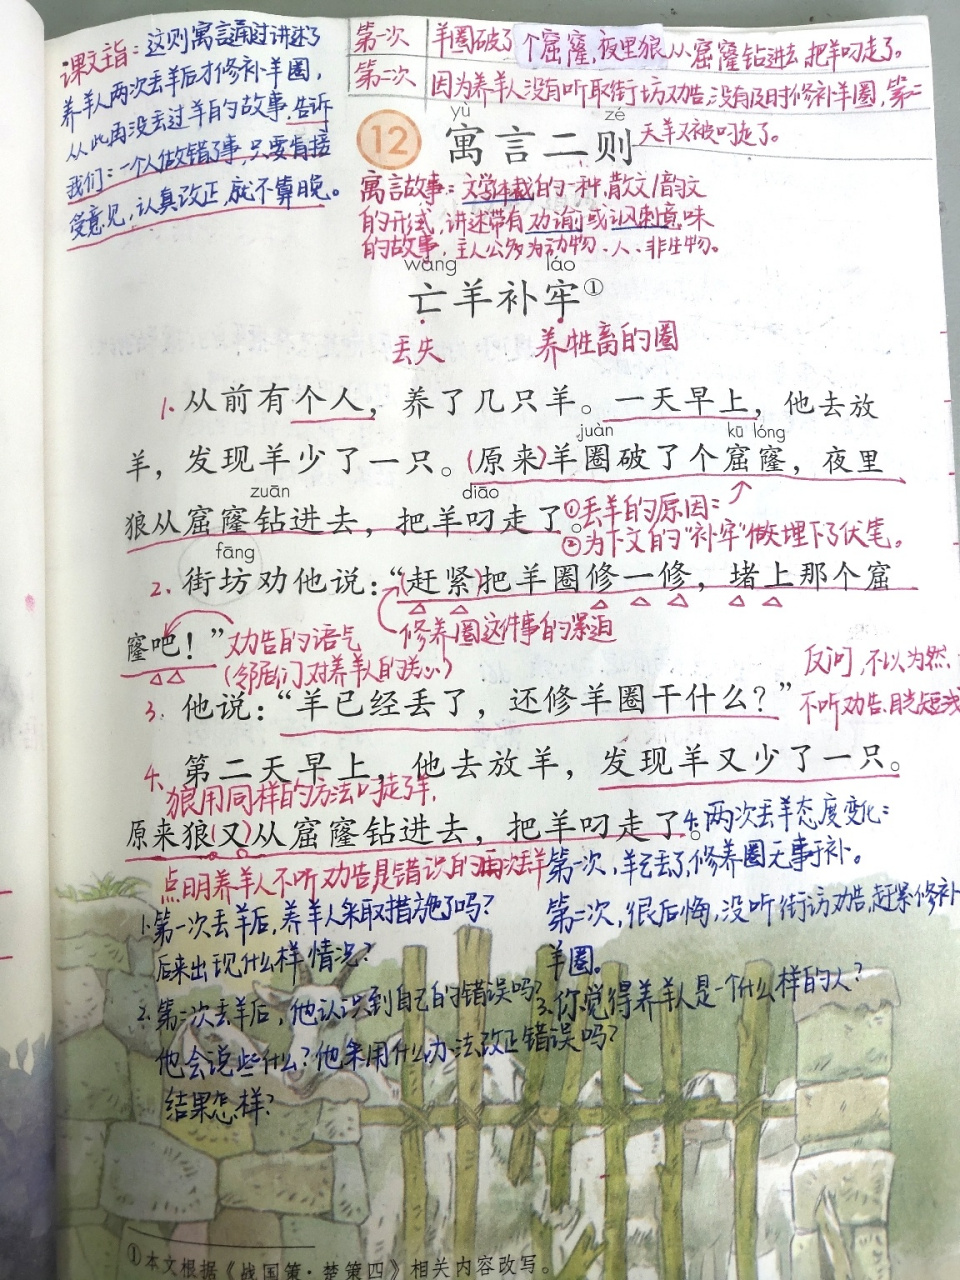 课文主旨：这则寓言通过讲述了
养羊人两次丢羊后才修补羊圈，
从此再没丢过羊的故事。告诉
我们：一个人做错了事，只要肯接
受意见，认真改正，就不算晚。
第一次 羊圈破了个窟窿，夜里狼从窟窿钻进去，把羊叼走了。
第二次 因为养羊人没有听取街坊劝告，没有及时修补羊圈，第二
天羊又被叼走了。
yù zé
12 寓言二则
寓言故事：文学体裁的一种，散文/韵文
的形式，讲述带有劝谕或讽刺意味
的故事，主人公多为动物、人、非生物。
wáng láo
亡羊补牢①
丢失 养牲畜的圈
1. 从前有个人，养了几只羊。一天早上，他去放
juàn kū lóng
羊，发现羊少了一只。(原来)羊圈破了个窟窿，夜里
zuān diāo
狼从窟窿钻进去，把羊叼走了。
①丢羊的原因：
②为下文的“补牢”做埋下了伏笔。
fāng
2. 街坊劝他说：“(赶紧)把羊圈修一修，堵上那个窟
窿吧！”
劝告的语气
(邻居们对养羊人的关心)
修养圈这件事的紧迫
反问，不以为然、
不听劝告、目光短浅
3. 他说：“羊已经丢了，还修羊圈干什么？”
4. 第二天早上，他去放羊，发现羊又少了一只。
狼用同样的方法叼走了羊，
原来狼(又)从窟窿钻进去，把羊叼走了。
点明养羊人不听劝告是错误的再次丢羊
4. 两次丢羊态度变化：
第一次，羊已丢了，修养圈无事于补。
第二次，很后悔，没听街访劝告，赶紧修补
羊圈。
1. 第一次丢羊后，养羊人采取措施了吗？
后来出现什么样情况？
2. 第二次丢羊后，他认识到自己的错误吗？
他会说些什么？他采用什么办法改正错误吗？
结果怎样？
3. 你觉得养羊人是一个什么样的人？
①本文根据《战国策·楚策四》相关内容改写。